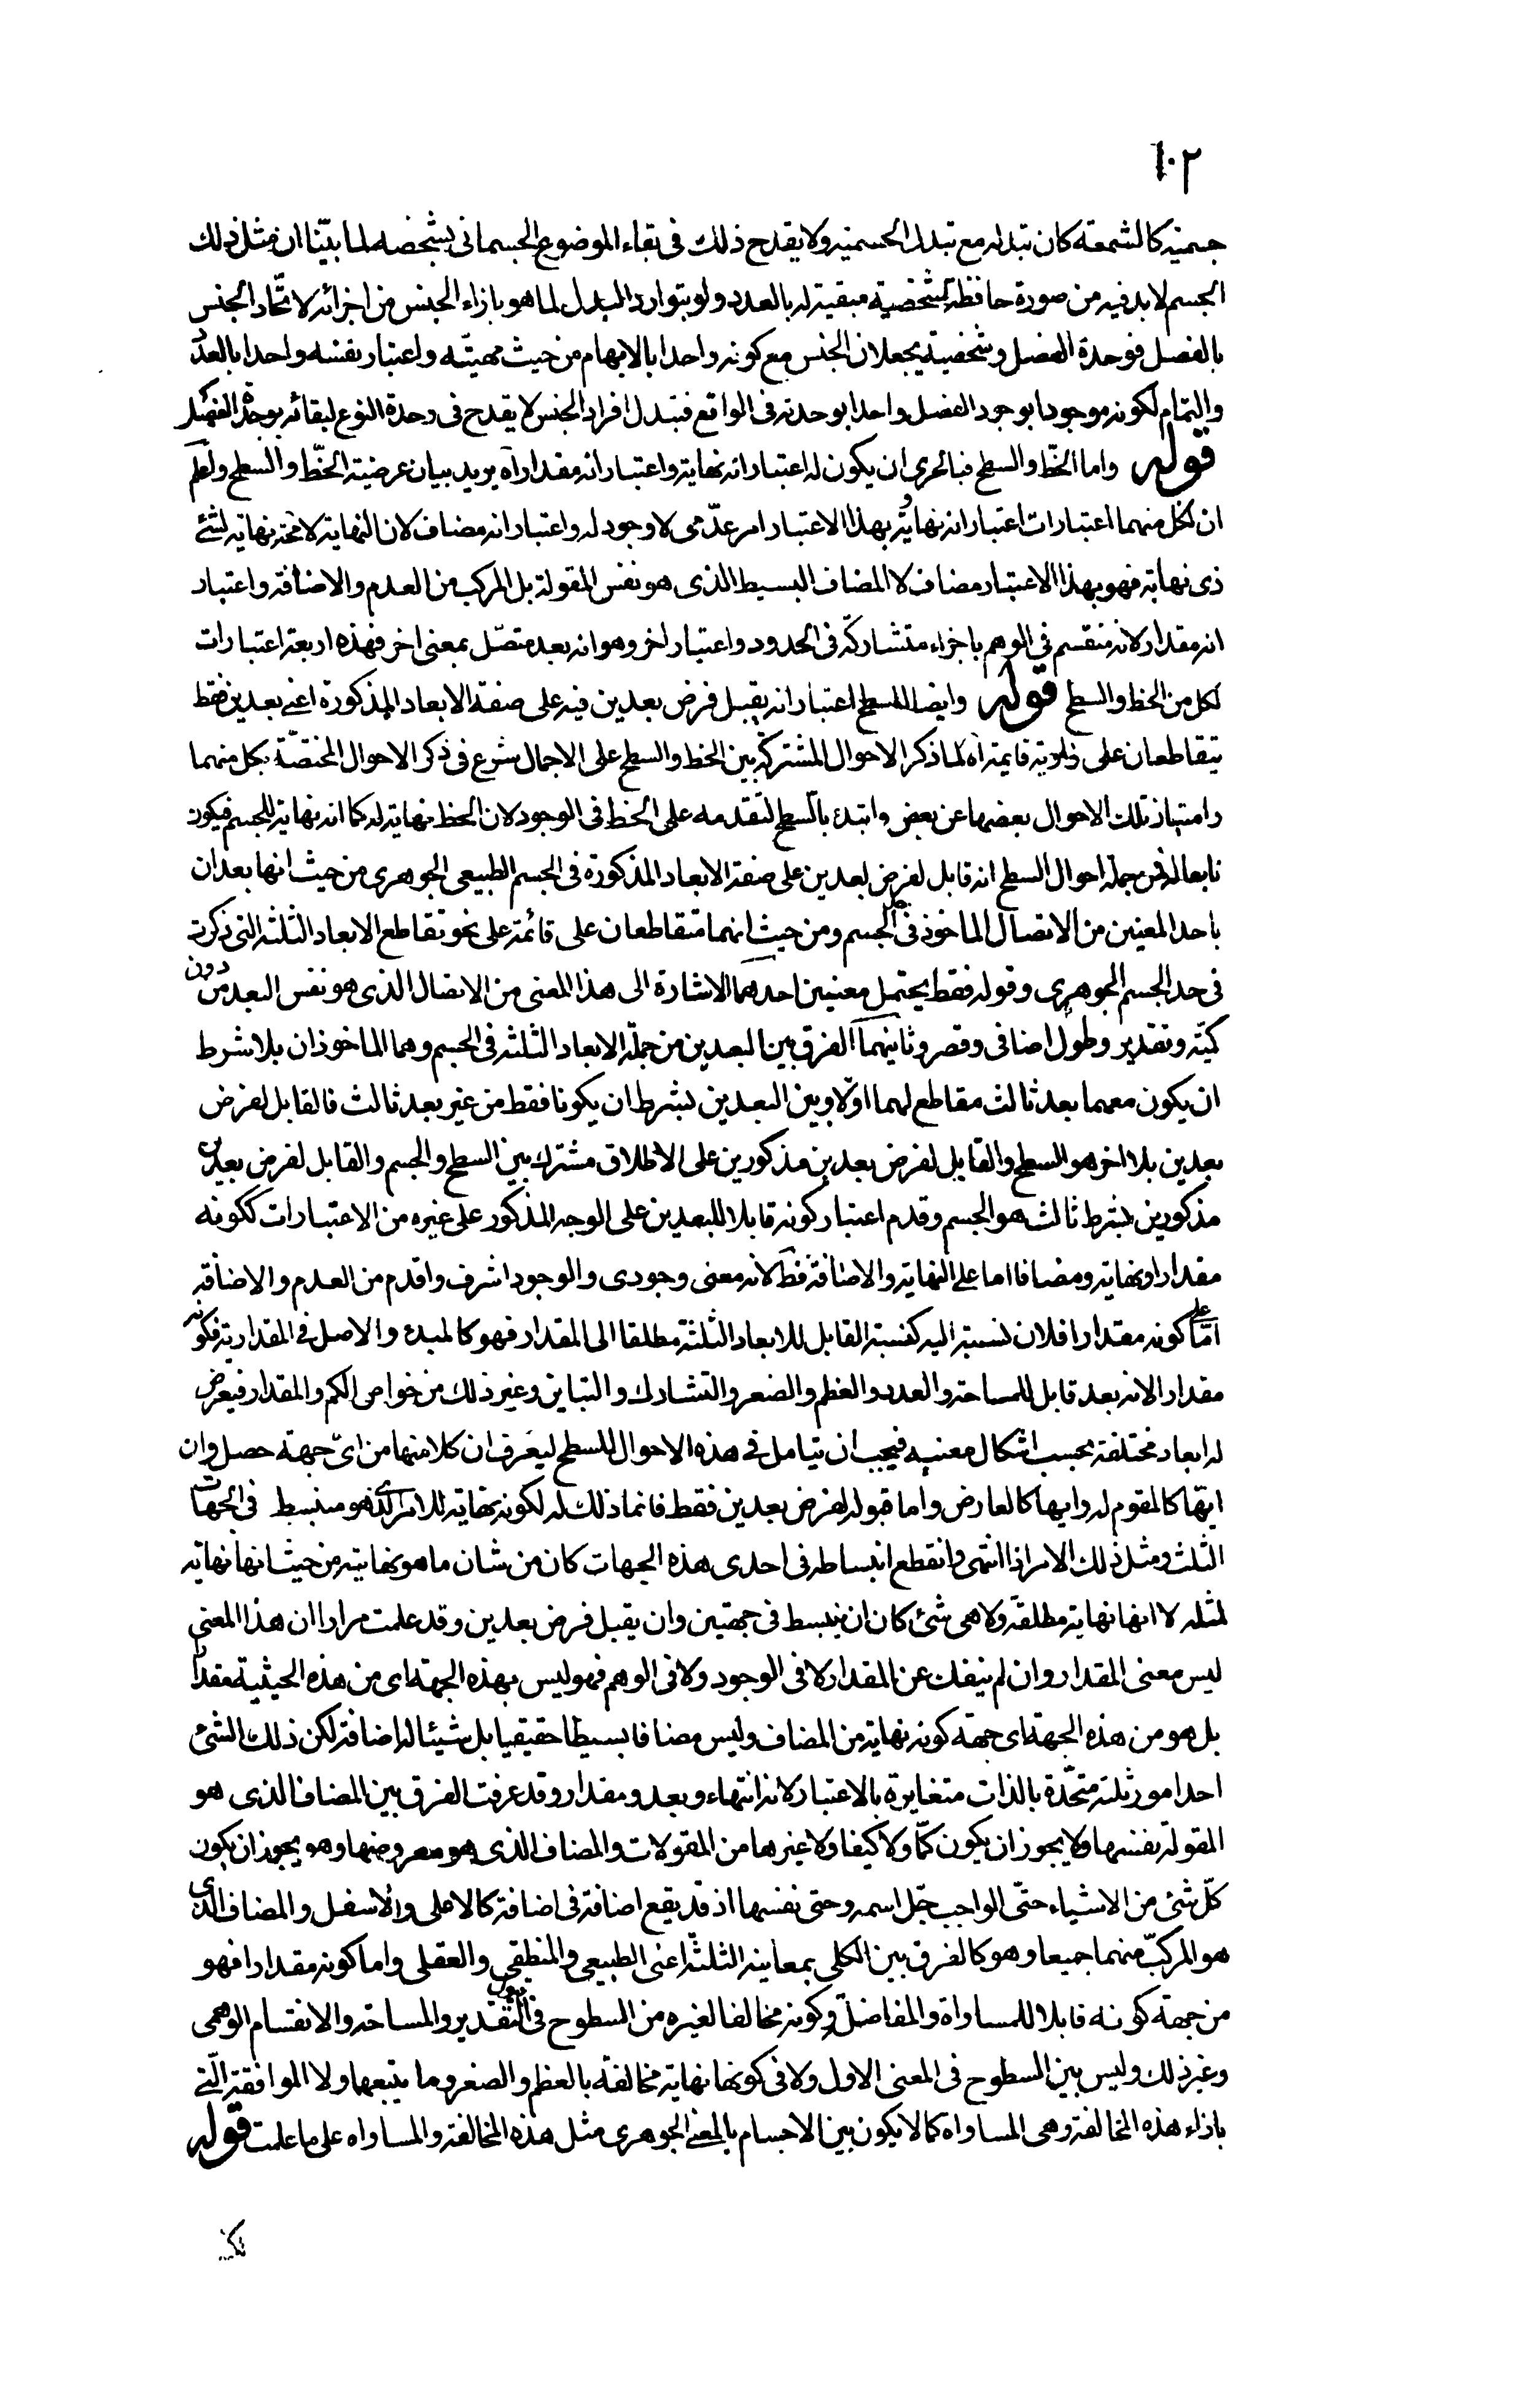 ١٠٢
جسمية كالشمعة كان تبدله مع تبدل الجسمية ولا يقدح ذلك فى بقاء الموضوع الجسمانى بشخصه لما بيّنا ان مثل ذلك
الجسم لا بد فيه من صورة حافظة لشخصية مبقية له بالعدد ولو بتوارد البدل لما هو بازاء الجنس من اجزائه لاتّحاد الجنس
بالفصل فوحدة الفصل وشخصيته يجعلان الجنس مع كونه واحدا بالابهام من حيث مهيّته واعتبار نفسه واحدا بالعدد
والتمام لكونه موجودا بوجود الفصل واحدا بوحدته فى الواقع فتبدل افراد الجنس لا يقدح فى وحدة النوع لبقائه بوحدة الفصل
قوله واما الخّط والسطح فبالحرى ان يكون له اعتبار انه نهاية واعتبار انه مقدار آه يريد بيان عرضية الخّط والسطح ولعلم
ان لكل منهما اعتبارات اعتبار انه نهاية وبهذا الاعتبار امر عدّمى لا وجود له واعتبار انه مضاف لان النهاية لا محة نهاية لشئ
ذى نهاية فهو بهذا الاعتبار مضاف لا المضاف البسيط الذى هو نفس المقولة بل المركب من العدم والاضافة واعتبار
انه مقدار لانه منقسم فى الوهم باجزاء متشاركة فى الحدود واعتبار اخر وهو انه بعد متصّل بمعنى اخر فهذه اربعة اعتبارات
لكل من الخط والسطح قوله وايضا للسطح اعتبار انه يقبل فرض بعدين فيه على صفة الابعاد المذكورة اعنى بعدين فقط
يتقاطعان على زاوية قايمة آه لما ذكر الاحوال المشتركة بين الخط والسطح على الاجمال شرع فى ذكر الاحوال المختصّة بكل منهما
وامتياز تلك الاحوال بعضها عن بعض وابتدء بالسطح لتقدمه على الخط فى الوجود لان الخط نهاية له كما انه نهاية للجسم فيكون
تابعا له فمن جملة احوال السطح انه قابل لفرض بعدين على صفة الابعاد المذكورة فى الجسم الطبيعى الجوهرى من حيث انها بعدان
باحد المعنيين من الاتصال الماخوذ فى الجسم ومن حيث انهما متقاطعان على قائمة على نحو تقاطع الابعاد الثلثة التى ذكرت
فى حد الجسم الجوهرى وقوله فقط يحتمل معنيين احدهما الاشارة الى هذا المعنى من الاتصال الذى هو نفس البعد من دون
كميّة وتقدير وطول اضافى وقصر وثانيهما الفرق بين البعدين من جملة الابعاد الثلثة فى الجسم وهما الماخوذان بلا شرط
ان يكون معهما بعد ثالث مقاطع لهما اولا وبين البعدين بشرط ان يكونا فقط من غير بعد ثالث فالقابل لفرض
بعدين بلا اخر هو السطح والقابل لفرض بعدين مذكورين على الاطلاق مشترك بين السطح والجسم والقابل لفرض بعدين
مذكورين بشرط ثالث هو الجسم وقدم اعتبار كونه قابلا للبعدين على الوجه المذكور على غيره من الاعتبارات ككونه
مقدارا ونهاية ومضافا اما على النهاية والاضافة فظ لانه معنى وجودى والوجود اشرف واقدم من العدم والاضافة
امّا على كونه مقدارا فلان نسبته اليه كنسبة القابل للابعاد الثلثة مطلقا الى المقدار فهو كالمبدء والاصل فى المقدارية فكونه
مقدارا لانه بعد قابل للمساحة والعدد والعظم والصغر والتشارك والتباين وغير ذلك من خواص الكم والمقدار فيعرض
له ابعاد مختلفة بحسب اشكال معنيه فيجب ان يتامل فى هذه الاحوال للسطح ليعرف ان كلا منها من اىّ جهة حصل وان
ايّها كالمقوم له وايها كالعارض واما قبوله لفرض بعدين فقط فانما ذلك له لكونه نهاية للامر الذى هو منبسط فى الجهات
الثلث ومثل ذلك الامر اذا انتهى وانقطع انبساطه فى احدى هذه الجهات كان من شان ما هو نهايته من حيث انها نهاية
لمثله لا انها نهاية مطلقة ولا هى شئ كان ان ينبسط فى جهتين وان يقبل فرض بعدين وقد علمت مرارا ان هذا المعنى
ليس معنى المقدار وان لم ينفك عن المقدار لا فى الوجود ولا فى الوهم فهو ليس بهذه الجهة اى من هذه الحيثية مقدارا
بل هو من هذه الجهة اى جهة كونه نهاية من المضاف وليس مضافا بسيطا حقيقيا بل شيئا له اضافة لكن ذلك الشئ
احد امور ثلثة متحّدة بالذات متغايرة بالاعتبار لانه انتهاء وبعد ومقدار وقد عرفت الفرق بين المضاف الذى هو
المقولة بنفسها ولا يجوز ان يكون كمّا ولا كيفا ولا غيرها من المقولات والمضاف الذى هو معروضها وهو يجوز ان يكون
كلّ شئ من الاشياء حتّى الواجب جّل اسمه وحتى نفسها اذ قد يقع اضافة فى اضافة كالاعلى والاسفل والمضاف الذى
هو المركبّ منهما جميعا وهو كالفرق بين الكلى بمعانيه الثلثة اعنى الطبيعى والمنطقى والعقلى واما كونه مقدارا فهو
من جهة كونه قابلا للمساواة والمفاضلة وكونه مخالفا لغيره من السطوح فى قبول التقدير والمساحة والانقسام الوهمى
وغير ذلك وليس بين السطوح فى المعنى الاول ولا فى كونها نهاية مخالفة بالعظم والصغر وما يتبعها ولا الموافقة الّتى
باذاء هذه المخالفة وهى المساواه كما لا يكون بين الاجسام بالمعنى الجوهرى مثل هذه المخالفة والمساواه على ما علمت قوله